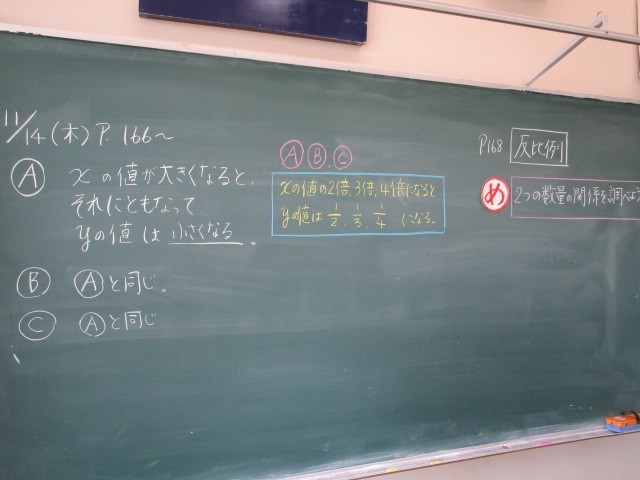 11/14(木) P.166〜
Ⓐ xの値が大きくなると、
それにともなって
yの値は 小さくなる 。
Ⓑ Ⓐと同じ。
Ⓒ Ⓐと同じ
Ⓐ Ⓑ . Ⓒ
xの値の2倍、3倍、4倍になると
yの値は 1/2、1/3、1/4 になる。
P168 反比例
め 2つの数量の関係を調べよう